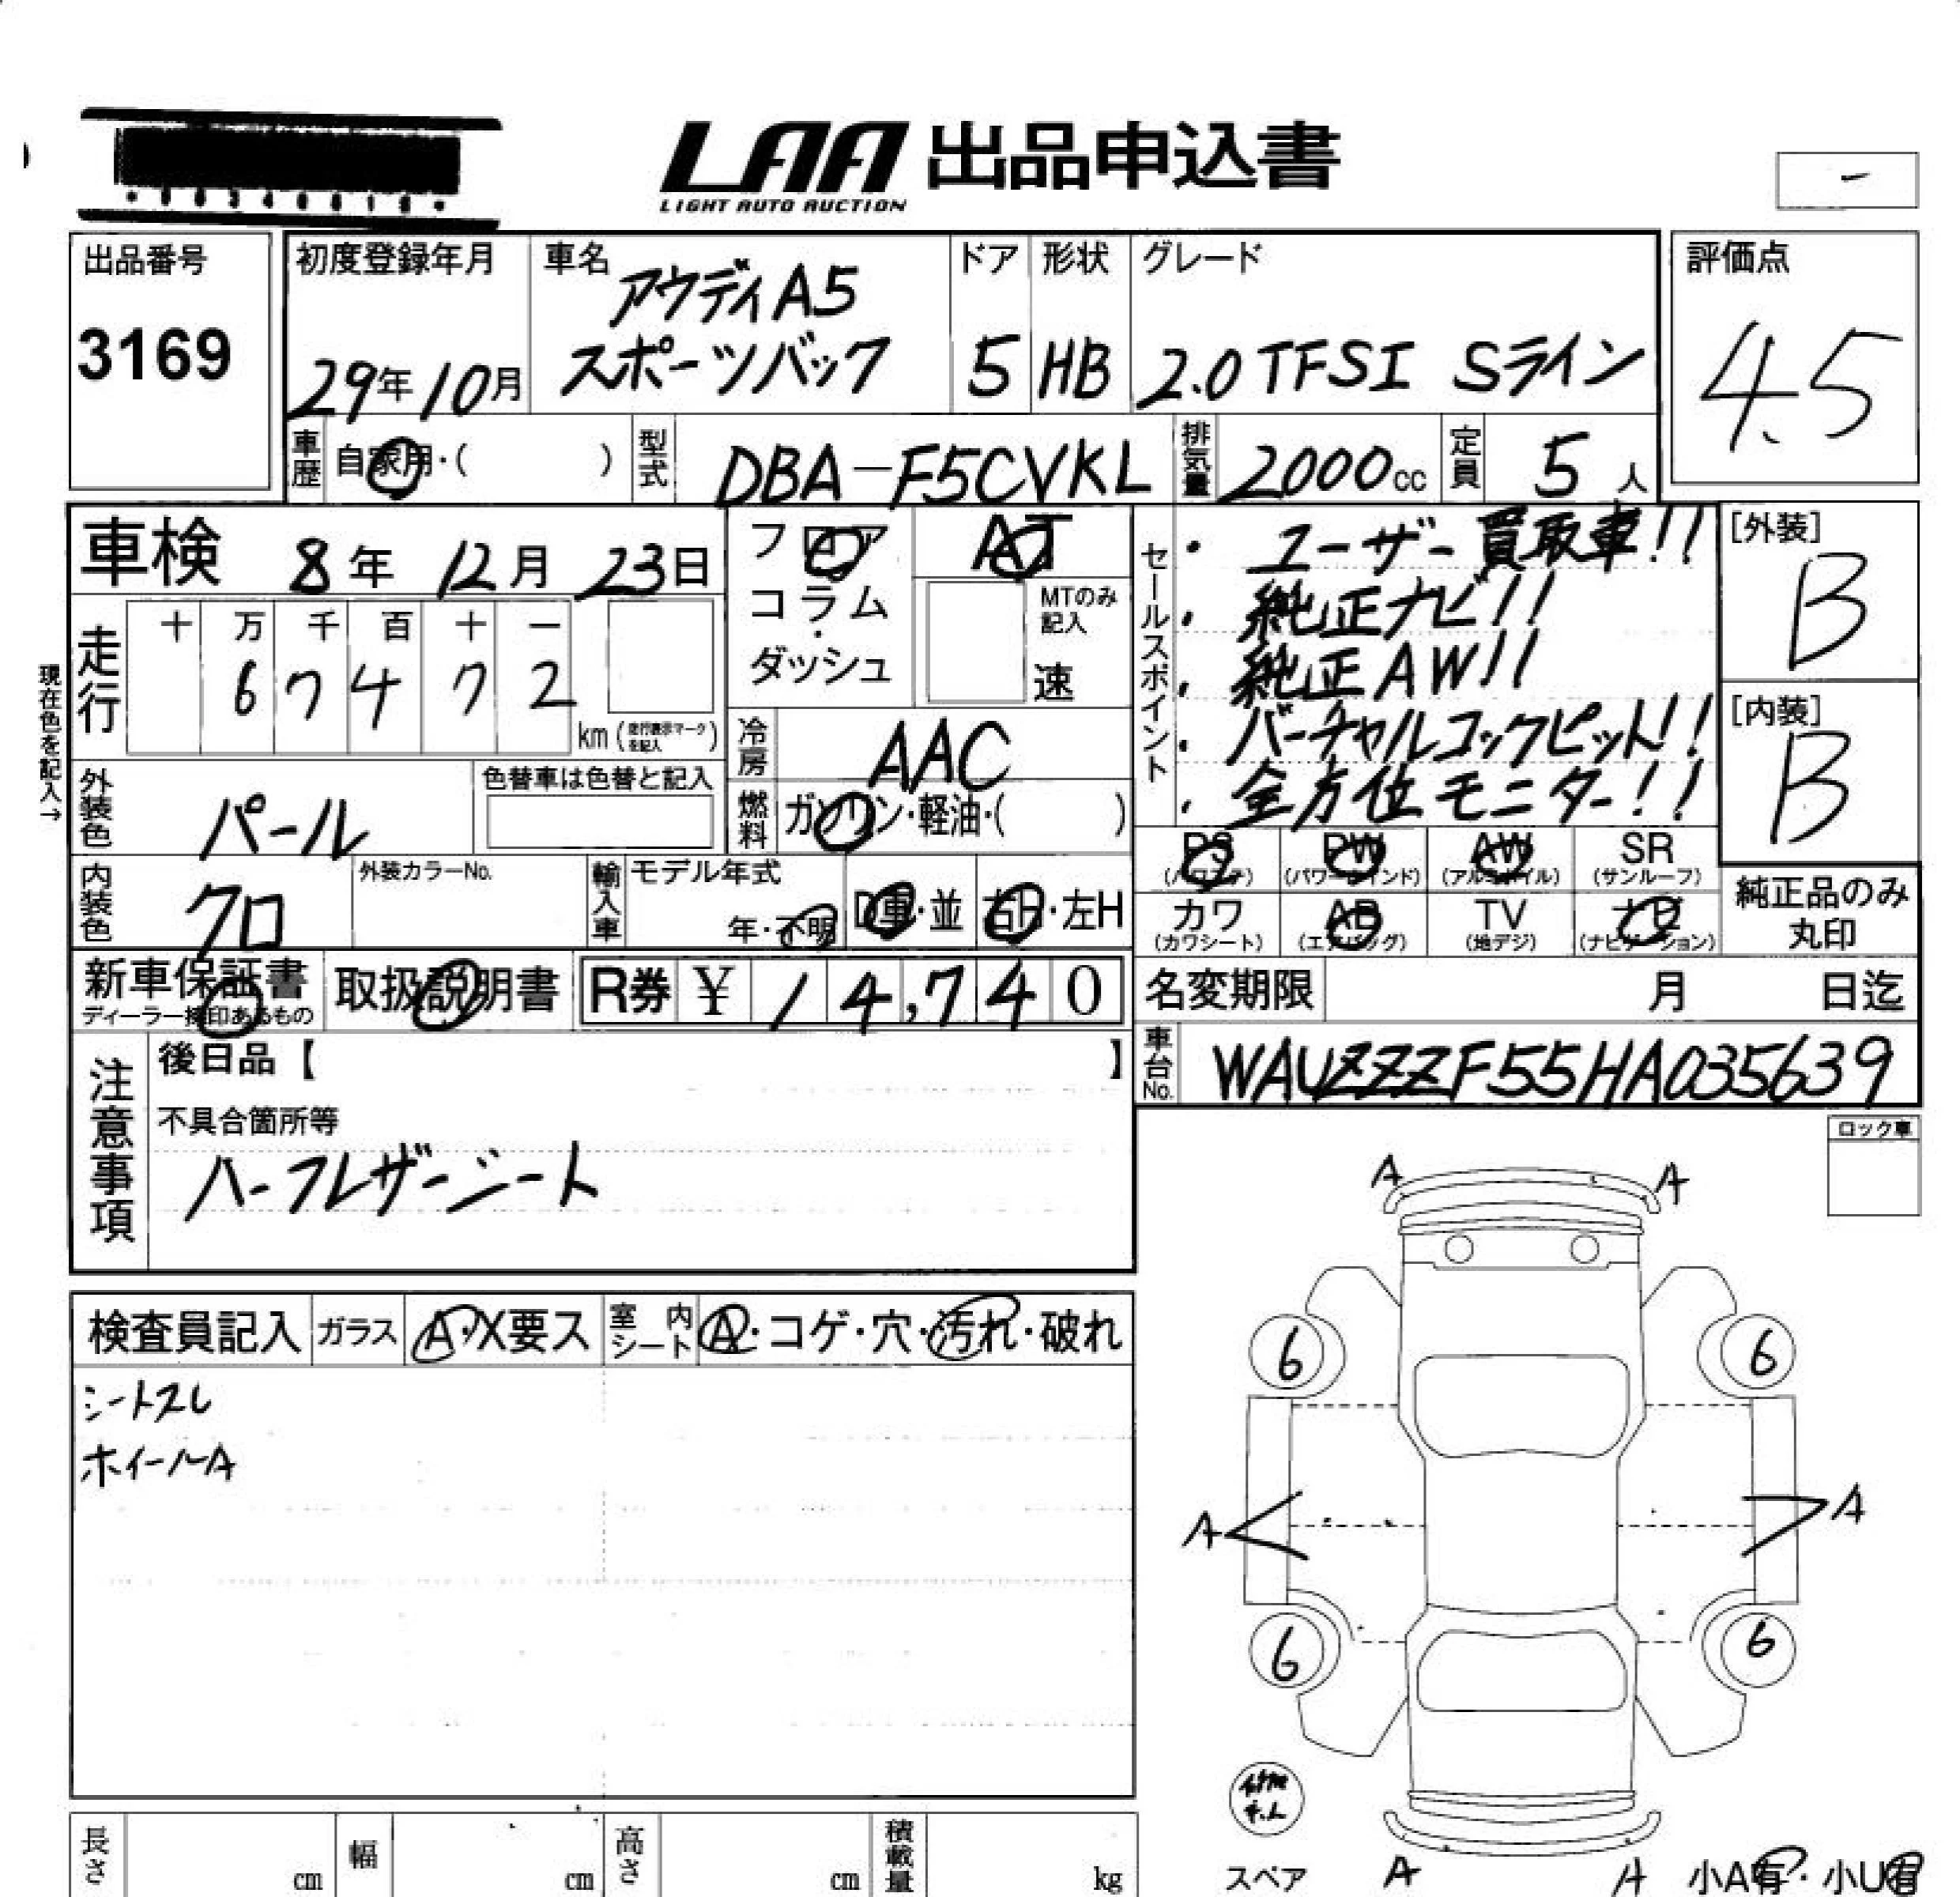 LAA 出品申込書
LIGHT AUTO AUCTION
-
出品番号
3169
初度登録年月
29年10月
車名
アウディA5
スポーツバック
ドア
5
形状
HB
グレード
2.0 TFSI Sライン
評価点
4.5
車歴
自家用・( )
型式
DBA-F5CVKL
排気量
2000cc
定員
5人
車検 8年 12月 23日
フロア
コラム
・
ダッシュ
AT
MTのみ
記入
速
セールスポイント
・ユーザー買取車!!
・純正ナビ!!
・純正AW!!
・バーチャルコックピット!!
・全方位モニター!!
[外装]
B
[内装]
B
現在色を記入→
走行
十 万 千 百 十 一
6 7 4 7 2
km(走行表示マークを記入)
冷房
AAC
外装色
パール
色替車は色替と記入
燃料
ガソリン・軽油・( )
PS
(パワステ)
PW
(パワーウインド)
AW
(アルミホイル)
SR
(サンルーフ)
内装色
クロ
外装カラーNo.
輸入車
モデル年式
年・不明
D車・並
右H・左H
カワ
(カワシート)
AB
(エアバッグ)
TV
(地デジ)
ナビ
(ナビゲーション)
純正品のみ
丸印
新車保証書
ディーラー捺印あるもの
取扱説明書
R券 ¥ 14,740
名変期限 月 日迄
車台No.
WAUZZZF55HA035639
注意事項
後日品【 】
不具合箇所等
ハーフレザーシート
ロック車
検査員記入
ガラス
A・X要ス
室内
シート
A・コゲ・穴・汚れ・破れ
シートスレ
ホイールA
A A
6 6
A A
6 6
スペア
A A
小A有・小U有
長さ cm
幅 cm
高さ cm
積載量 kg